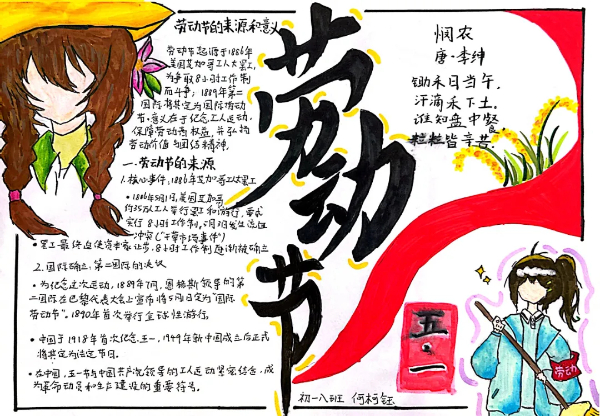 劳动节的来源和意义
劳动节起源于1886年
美国芝加哥工人大罢工,
为争取8小时工作制
而斗争;1889年第二
国际将其定为国际劳动
者,意义在于纪念工人运动,
保障劳动者权益,并弘扬
劳动价值与团结精神。
一.劳动节的来源
1.核心事件,1886年芝加哥工人大罢工
•1886年5月1日,美国芝加哥
约35万工人举行罢工和游行,要求
实行8小时工作制,
冲突("干草市场事件")
•罢工最终迫使资本家让步,8小时工作制逐渐被确立
2.国际确立,第二国际的决议
•为纪念这次运动,1889年7月,恩格斯领导的第
二国际在巴黎代表大会上宣布将5月1日定为"国际
劳动节"。1890年首次举行全球性游行。
•中国于1918年首次纪念五一,1949年新中国成立后正式
将其定为法定节日。
•在中国,五一节与中国共产党领导的工人运动紧密结合,成
为革命动员和生产建设的重要符号。
劳动节
悯农
唐·李绅
锄禾日当午,
汗滴禾下土。
谁知盘中餐
粒粒皆辛苦。
五·一
劳动
初一八班 何柯钰